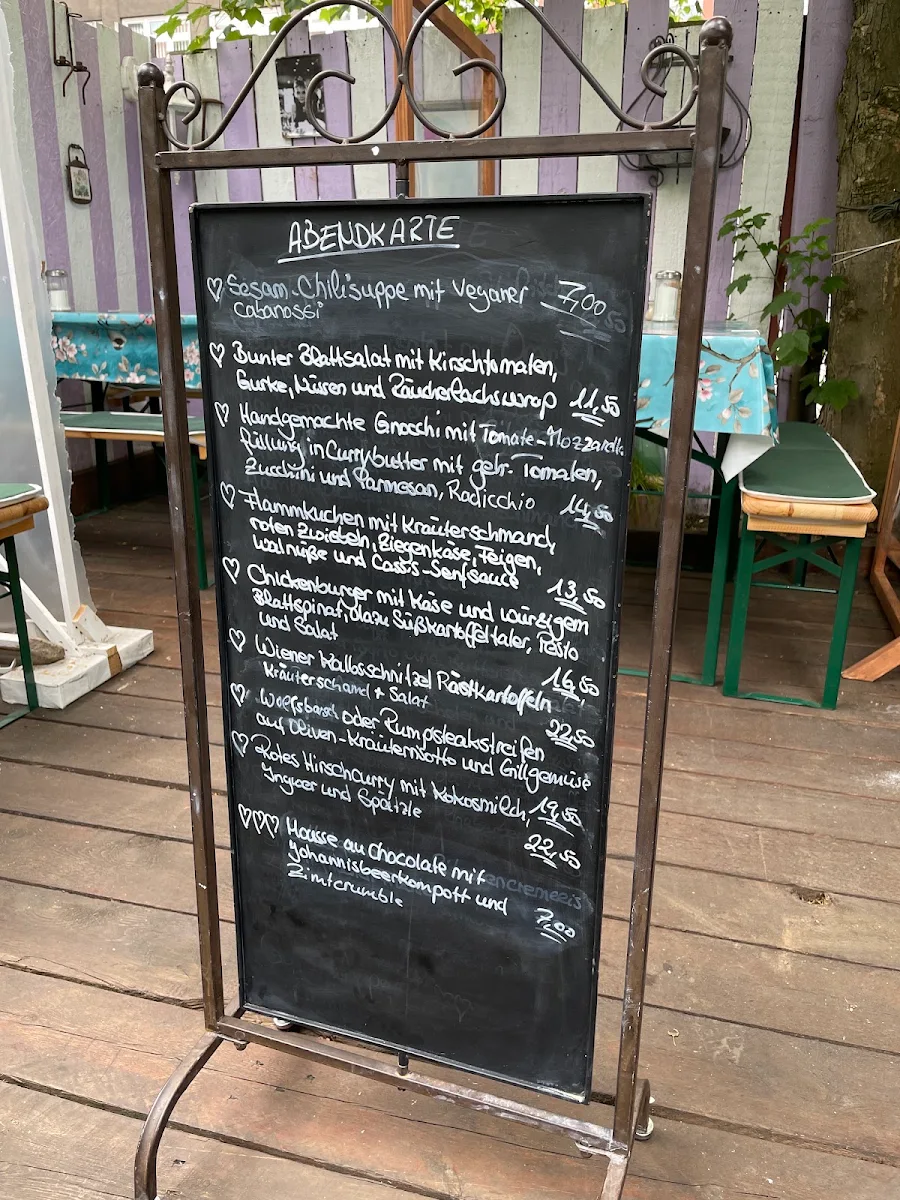 ABENDKARTE
Sesam-Chilisuppe mit veganer 7,00
Cabanossi
Bunter Blattsalat mit Kirschtomaten,
Gurke, Nüssen und Räucherlachswrap 11,50
Handgemachte Gnocchi mit Tomate-Mozzarella
Füllung in Currybutter mit getr. Tomaten,
Zucchini und Parmesan, Radicchio 14,50
Flammkuchen mit Kräuterschmand,
roten Zwiebeln, Ziegenkäse, Feigen,
Walnüße und Cassis-Senfsauce 13,50
Chickenburger mit Käse und würzigem
Blattspinat, dazu Süßkartoffeltaler, Pesto
und Salat 16,50
Wiener Röstkartoffeln,
Kräuterschmand + Salat 22,50
Wolfsbarsch oder Rumpsteakstreifen
auf Oliven-Kräuterrisotto und Gillgemüse
19,50
Rotes Hirschcurry mit Kokosmilch,
Ingwer und Spätzle 22,50
Mousse au Chocolate mit
Johannisbeerkompott und
Zimtcrumble 7,00